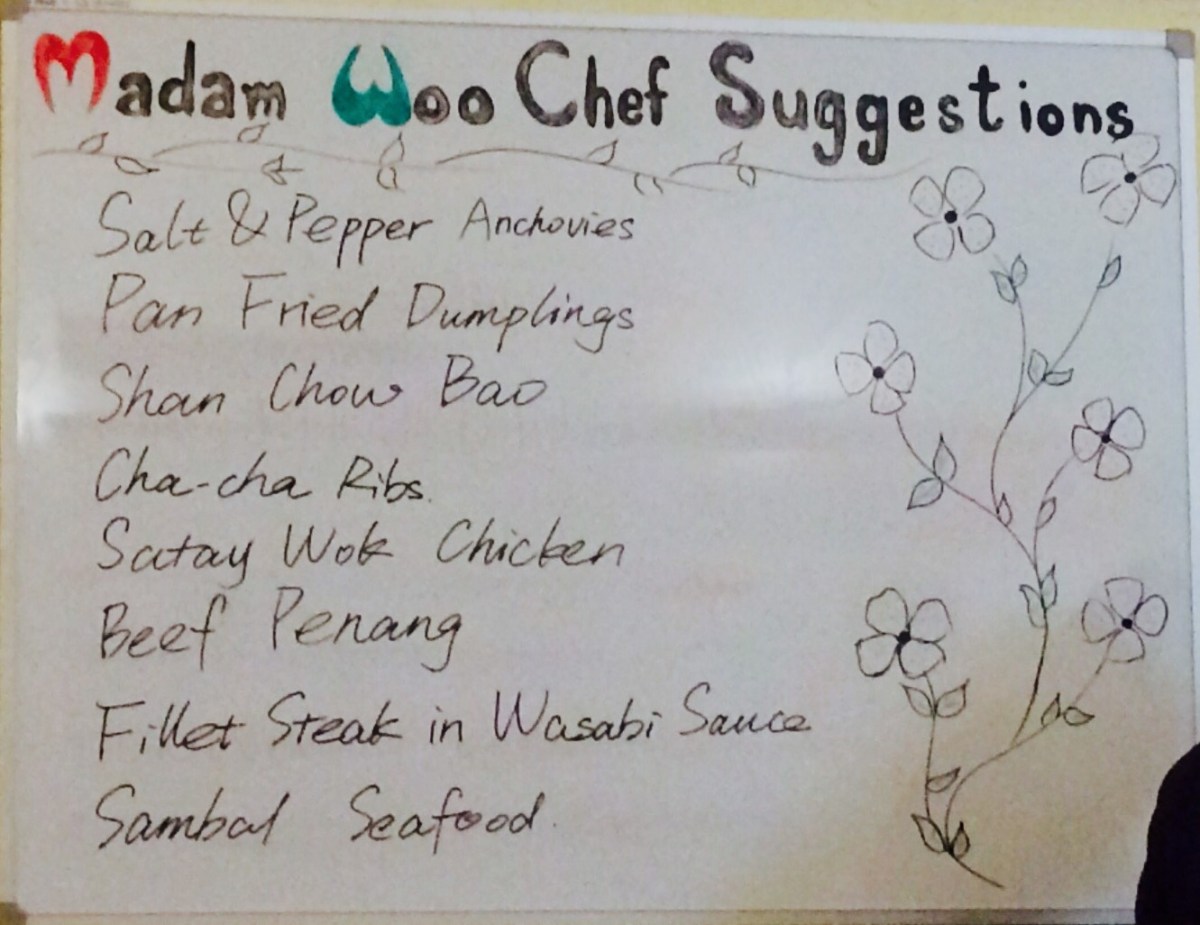 Madam Woo Chef Suggestions
Salt & Pepper Anchovies
Pan Fried Dumplings
Shan Chow Bao
Cha-cha Ribs.
Satay Wok Chicken
Beef Penang
Fillet Steak in Wasabi Sauce
Sambal Seafood.